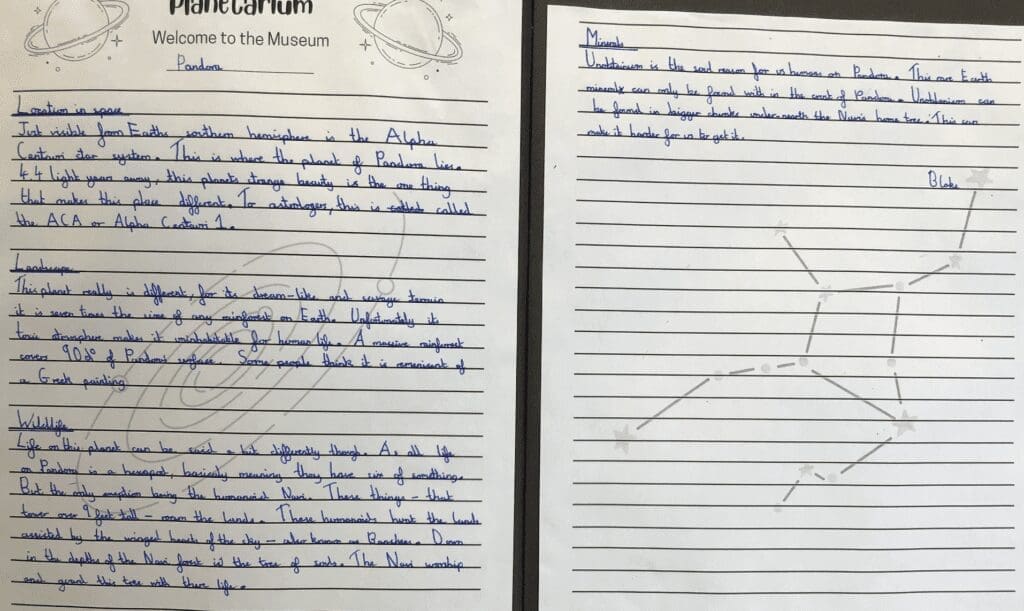 Planetarium
Welcome to the Museum
Pandora
Location in space
Just visible from Earths southern hemisphere is the Alpha
Centauri star system. This is where the planet of Pandora lies.
4.4 light years away, this planets strange beauty is the one thing
that makes this place different. To astrologers, this is called called
the ACA or Alpha Centauri 1.
Landscape
This planet really is different, for its dream-like and savage terrain
it is seven times the size of any rainforest on Earth. Unfortunately its
toxic atmosphere makes it uninhabitable for human life. A massive rainforest
covers 90% of Pandoras surface. Some people think it is reminicent of
a Greek painting
Wildlife
Life on this planet can be said a bit differently though. As all life
on Pandora is a hexapod, basicaly meaning they have six of somthing.
But the only exeption being the humanoid Navi. These things - that
tower over 9 feet tall - roam the lands. These humanoids hunt the lands
assisted by the winged beasts of the sky - also known as Banshees. Down
in the depths of the Navi forest is the tree of souls. The Navi worship
and guard this tree with there life.
Minerals
Unobtainium is the soul reason for us humans on Pandora. This rare Earth
minerals can only be found with in the crust of Pandora. Unobtanium can
be found in bigger chunks under-nearth the Navis home tree. This can
make it harder for us to get it.
Blake